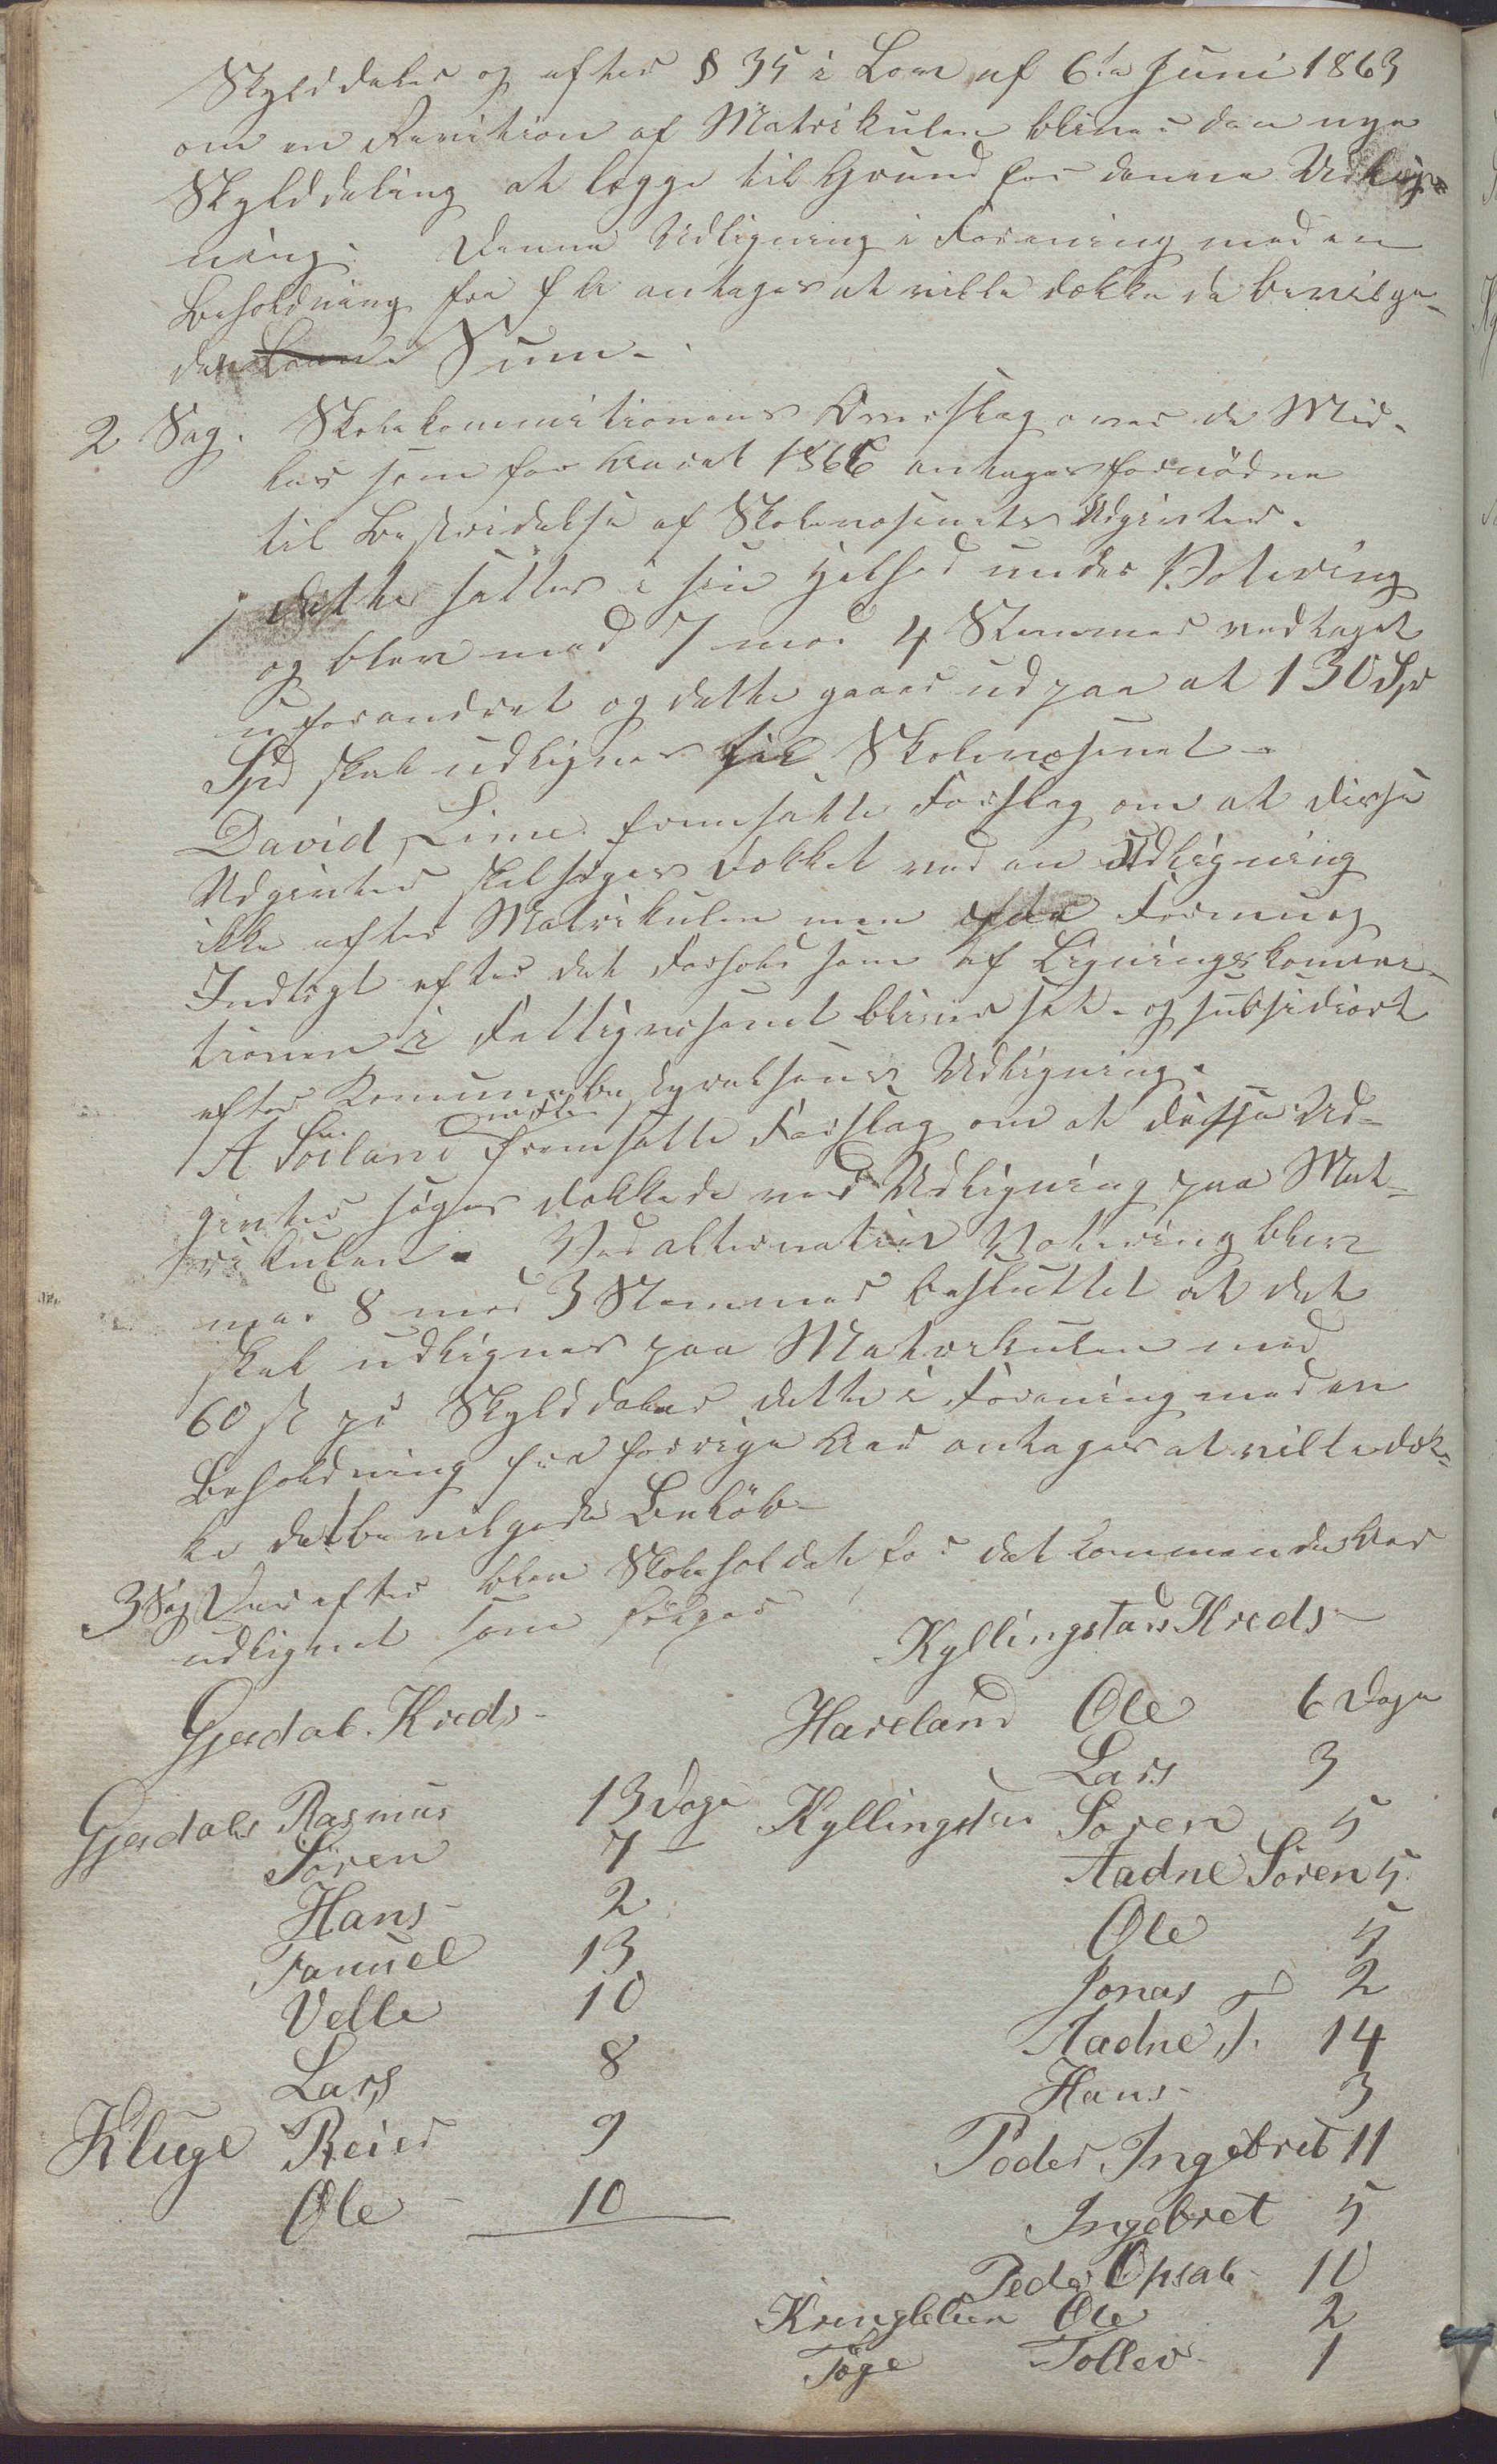 Skylddaler og efter § 35 i Lov af 6te Juni 1863
om en Revition af Matrikulen bliver den nye
Skylddeling at lægge til Grund for denne Udlig-
ning. Denne Udligning i Forening med en
Beholdning fra f A antages at ville dække de bevilge-
de Sum.
2 Sag. Skolekommitionens Overslag over de Mid-
ler som for Aaret 1866 antages fornødne
til Bestridelse af Skolevæsenets Udgivter.
dette sattes i sin Helhed under Votering
og blev med 7 mod 4 Stemmer vedtaget
uforandret og dette gaaer ud paa at 130 Spd
Spd skal udlignes til Skolevæsenet -
David Lime fremsatte Forslag om at disse
Udgivter skal søges dækket ved en Udligning
ikke efter Matrikulen men paa Formue og
Indtægt efter det Forhold som af Ligningskommi-
tionen i Fattigvæsenet bliver sat - og subsidiært
efter Komunebestyrelsens Udligning.
A Soiland fremsatte Forslag om at disse Ud-
givter søges dækkede ved Udligning paa Mat-
rikulen. Ved alternativ Votering blev
med 8 mod 3 Stemmer besluttet at det
skal udlignes paa Matrikulen med
60 ß pr Skylddaler dette i Forening med en
Beholdning fra forrige Aar antages at ville dæk-
ke det bevilgede Beløb -
3 Sag Derefter blev Skoleholdet for det kommende Aar
udlignet som følger
Kyllingstad Kreds -
Gjedal. Kreds -
Hareland Ole 6 Dage
Lars 3
Gjedal Rasmus 13 Dage
Kyllingstad Soren 5
Soren 7 -
Aadne Soren 5
Hans - 2
Ole 5
Samuel 13
Jonas 2
Velle 10
Aadne J. 14
Lars 8
Hans - 3
Kluge Reier 9
Peder Ingebret 11
Ole - 10
Ingebret 5
Peder Opsal - 10
Kringlelien Ole 2
Tøge Tollev - 1